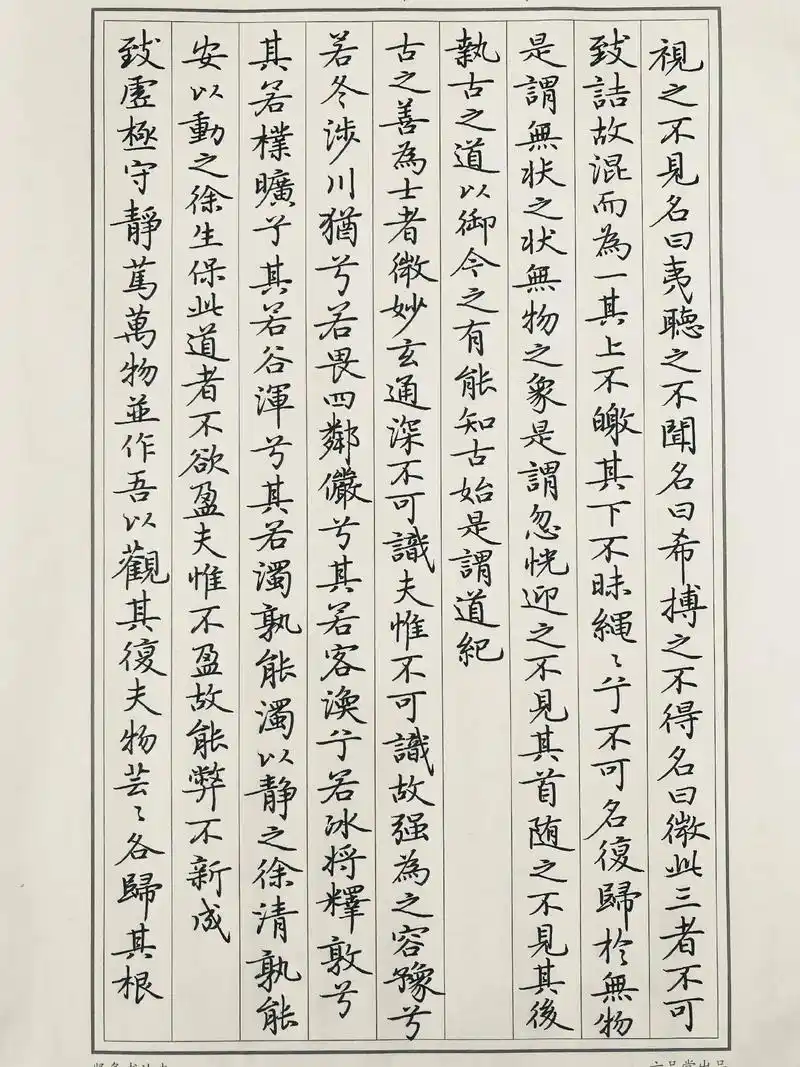 視之不見名曰夷聽之不聞名曰希搏之不得名曰微此三者不可
致詰故混而為一其上不皦其下不昧繩〻兮不可名復歸於無物
是謂無狀之狀無物之象是謂忽恍迎之不見其首随之不見其後
執古之道以御今之有能知古始是謂道紀
古之善為士者微妙玄通深不可識夫惟不可識故强為之容豫兮
若冬涉川猶兮若畏四鄰儼兮其若客渙兮若冰将釋敦兮
其若樸曠兮其若谷渾兮其若濁孰能濁以静之徐清孰能
安以動之徐生保此道者不欲盈夫惟不盈故能弊不新成
致虛極守靜篤萬物並作吾以觀其復夫物芸〻各歸其根